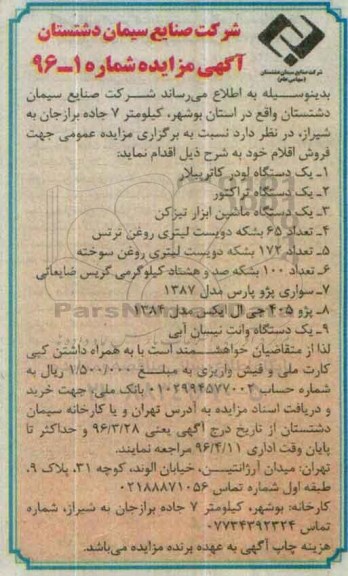 شرکت صنایع سیمان دشتستان
آگهی مزایده شماره ۱ــ۹۶
شرکت صنایع سیمان دشتستان
(سهامی عام)
بدینوسیله به اطلاع می‌رساند شرکت صنایع سیمان
دشتستان واقع در استان بوشهر، کیلومتر ۷ جاده برازجان به
شیراز، در نظر دارد نسبت به برگزاری مزایده عمومی جهت
فروش اقلام خود به شرح ذیل اقدام نماید:
۱ـ یک دستگاه لودر کاترپیلار
۲ـ یک دستگاه تراکتور
۳ـ یک دستگاه ماشین ابزار تیزکن
۴ـ تعداد ۶۵ بشکه دویست لیتری روغن ترنس
۵ـ تعداد ۱۷۲ بشکه دویست لیتری روغن سوخته
۶ـ تعداد ۱۰۰ بشکه صد و هشتاد کیلوگرمی گریس ضایعاتی
۷ـ سواری پژو پارس مدل ۱۳۸۷
۸ـ پژو ۴۰۵ جی ال ایکس مدل ۱۳۸۴
۹ـ یک دستگاه وانت نیسان آبی
لذا از متقاضیان خواهشمند است با به همراه داشتن کپی
کارت ملی و فیش واریزی به مبلغ ۱/۵۰۰/۰۰۰ ریال به
شماره حساب ۰۱۰۲۹۹۴۵۷۷۰۰۲ بانک ملی، جهت خرید
و دریافت اسناد مزایده به آدرس تهران و یا کارخانه سیمان
دشتستان از تاریخ درج آگهی یعنی ۹۶/۳/۲۸ و حداکثر تا
پایان وقت اداری ۹۶/۴/۱۱ مراجعه نمایند.
تهران: میدان آرژانتیـن، خیابان الوند، کوچه ۳۱، پلاک ۹،
طبقه اول شماره تماس ۰۲۱۸۸۸۷۱۰۵۶
کارخانه: بوشهر، کیلومتر ۷ جاده برازجان به شیراز، شماره
تماس ۰۷۷۳۴۳۹۲۳۲۴
هزینه چاپ آگهی به عهده برنده مزایده می‌باشد.